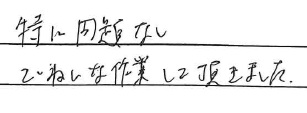 特に問題ない
ていねいな作業して頂きました.